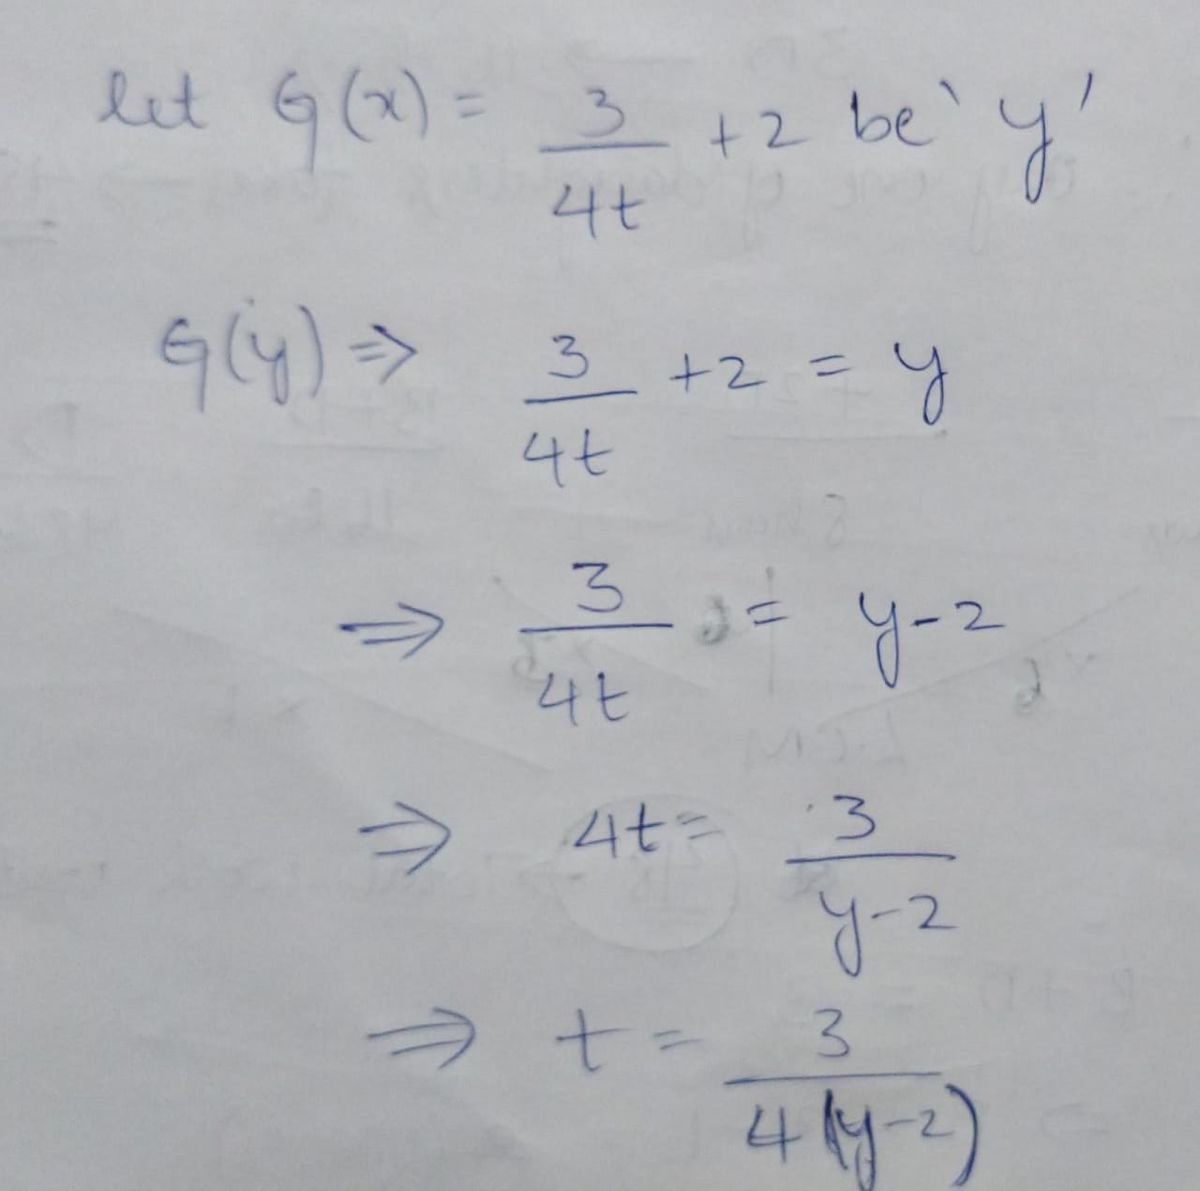 let G(x) = 3/4t + 2 be 'y'
G(y) ⇒ 3/4t + 2 = y
⇒ 3/4t = y - 2
⇒ 4t = 3/y-2
⇒ t = 3/4(y-2)